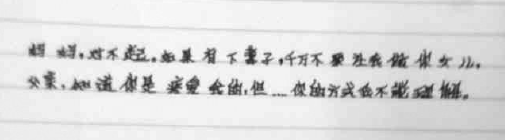 妈妈,对不起。如果有下辈子,千万不要让我做你女儿。
父亲,知道你是疼爱我的,但...你的方式我不能理解。